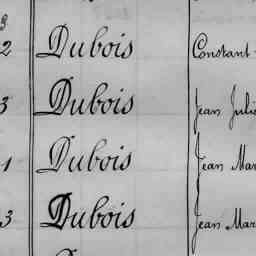 2 Dubois Constant
3 Dubois Jean Juli
1 Dubois Jean Mar
3 Dubois Jean Mar